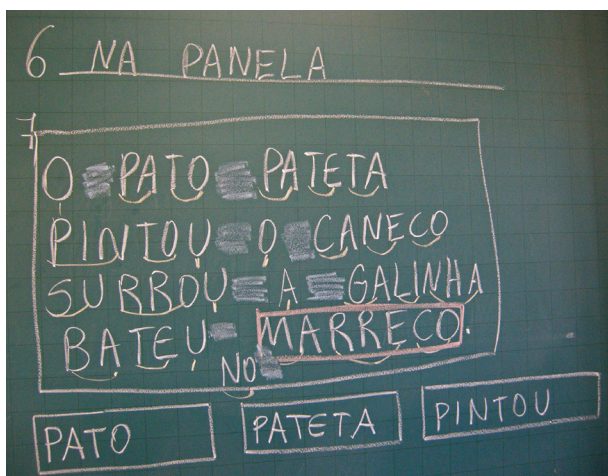 6 NA PANELA
O PATO PATETA
PINTOU O CANECO
SURROU A GALINHA
BATEU NO MARRECO.
PATO PATETA PINTOU